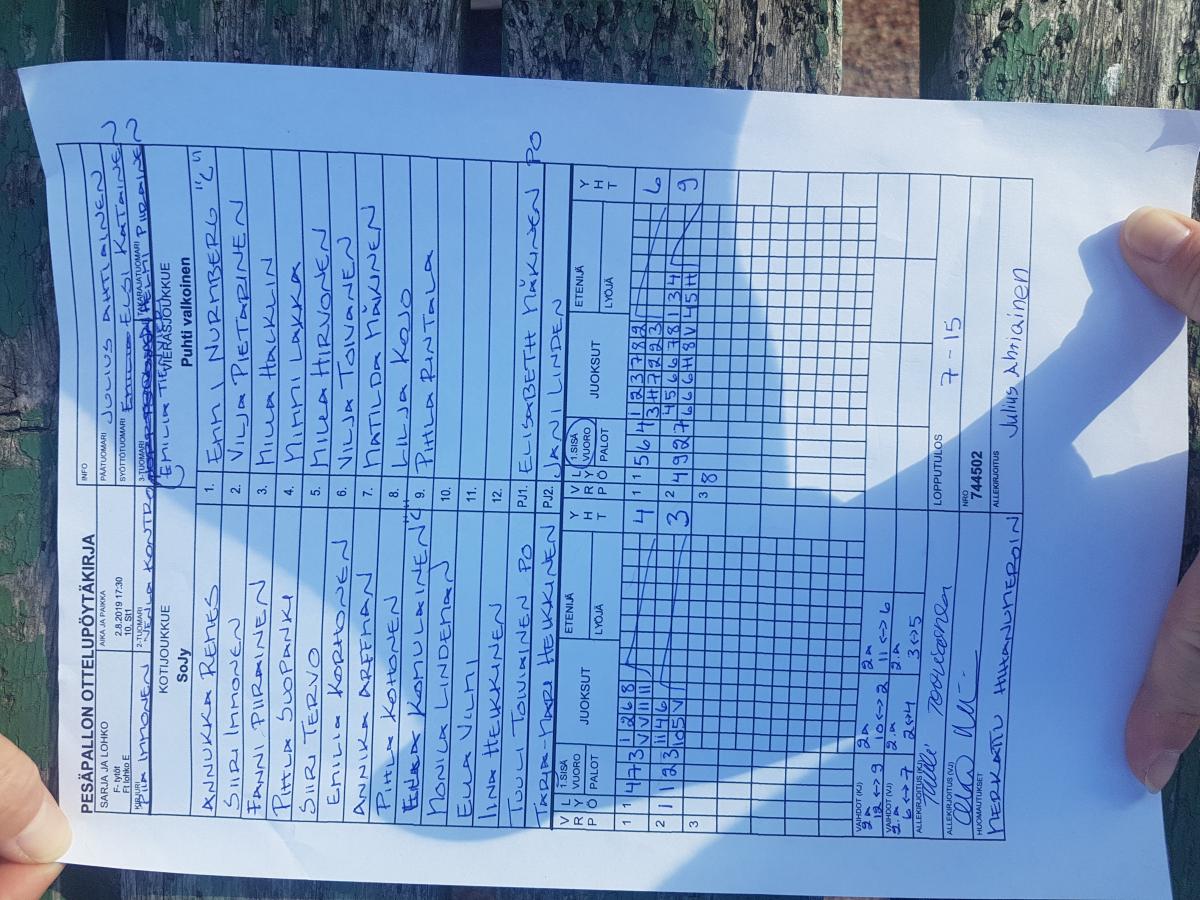 PESÄPALLON OTTELUPÖYTÄKIRJA
SARJA JA LOHKO
F- tytöt
Ft lohko E
AIKA JA PAIKKA
2.8.2019 17:30
10, St1
INFO
PÄÄTUOMARI JULIUS AHTIAINEN
SYÖTTÖTUOMARI ELSI KATAINEN
KIRJURI PIIA IMMONEN
2-TUOMARI VENLA KONTRO
3-TUOMARI
TAKARAJATUOMARI HELMI PIIRAINEN
EMILIA
KOTIJOUKKUE
SoJy
VIERASJOUKKUE
Puhti valkoinen
ANNUKKA REMES 1. EMMI NURMBERG "C"
SIIRI IMMONEN 2. VILJA PIETARINEN
FANNI PIIRAINEN 3. MILLA HACKLIN
PIHLA SUOPANKI 4. MIMMI LAKKA
SIIRI TERVO 5. MILLA HIRVONEN
EMILIA KORHONEN 6. VILJA TOIVANEN
ANNIKA ARFFMAN 7. MATILDA MÄKINEN
PIHLA KOHONEN 8. LILJA KOJO
KOMULAINEN "C" 9. PIHLA RINTALA
MONILA LINDEMAN 10.
ELLA VILMI 11.
IINA HEIKKINEN 12.
TUULI TOIVIAINEN PO PJ1. ELISABETH MÄKINEN PO
TARJA-MARI HEIKKINEN PJ2. JANI LINDEN
VRP LYÖ 1.SISÄ VUORO PALOT JUOKSUT ETENIJÄ LYÖJÄ YHT
VRP LYÖ 1.SISÄ VUORO PALOT JUOKSUT ETENIJÄ LYÖJÄ YHT
1 1 4 7 3 1 2 6 8 4
1 1 5 6 4 1 2 3 7 8 2 6
2 1 1 2 3 11 4 6 3
2 4 9 2 7 4 5 6 6 7 8 1 3 4 9
3
3 8
VAIHDOT (KJ) 2a 12 <-> 9 2a 10 <-> 2 2a 11 <-> 6
VAIHDOT (VJ) 2.a 6 <-> 7 2.a 2<->4 2.a 3<->5
ALLEKIRJOITUS (KJ)
ALLEKIRJOITUS (VJ)
LOPPUTULOS 7 - 15
HUOMAUTUKSET
MERKATTU HIHANUMEROIN
NRO
744502
ALLEKIRJOITUS
Julius Ahtiainen